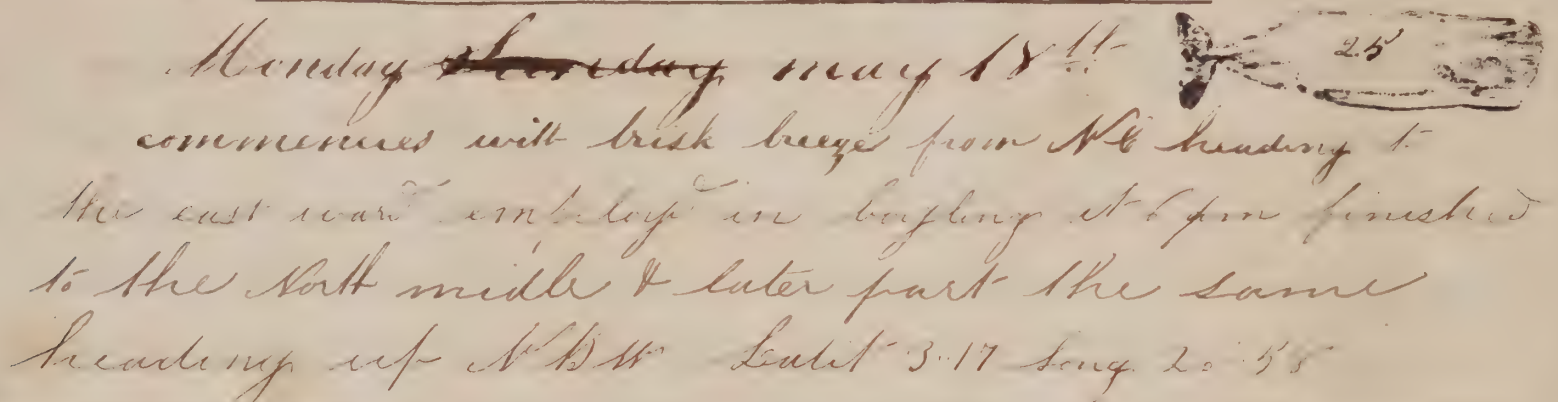 Monday ~~Sunday~~ may 18th 25
commences with brisk breeze from NE heading to
the east ward employd in boyling at 6 pm finished
to the North midle & later part the same
heading up NBW Latit 3.17 Long 20 58